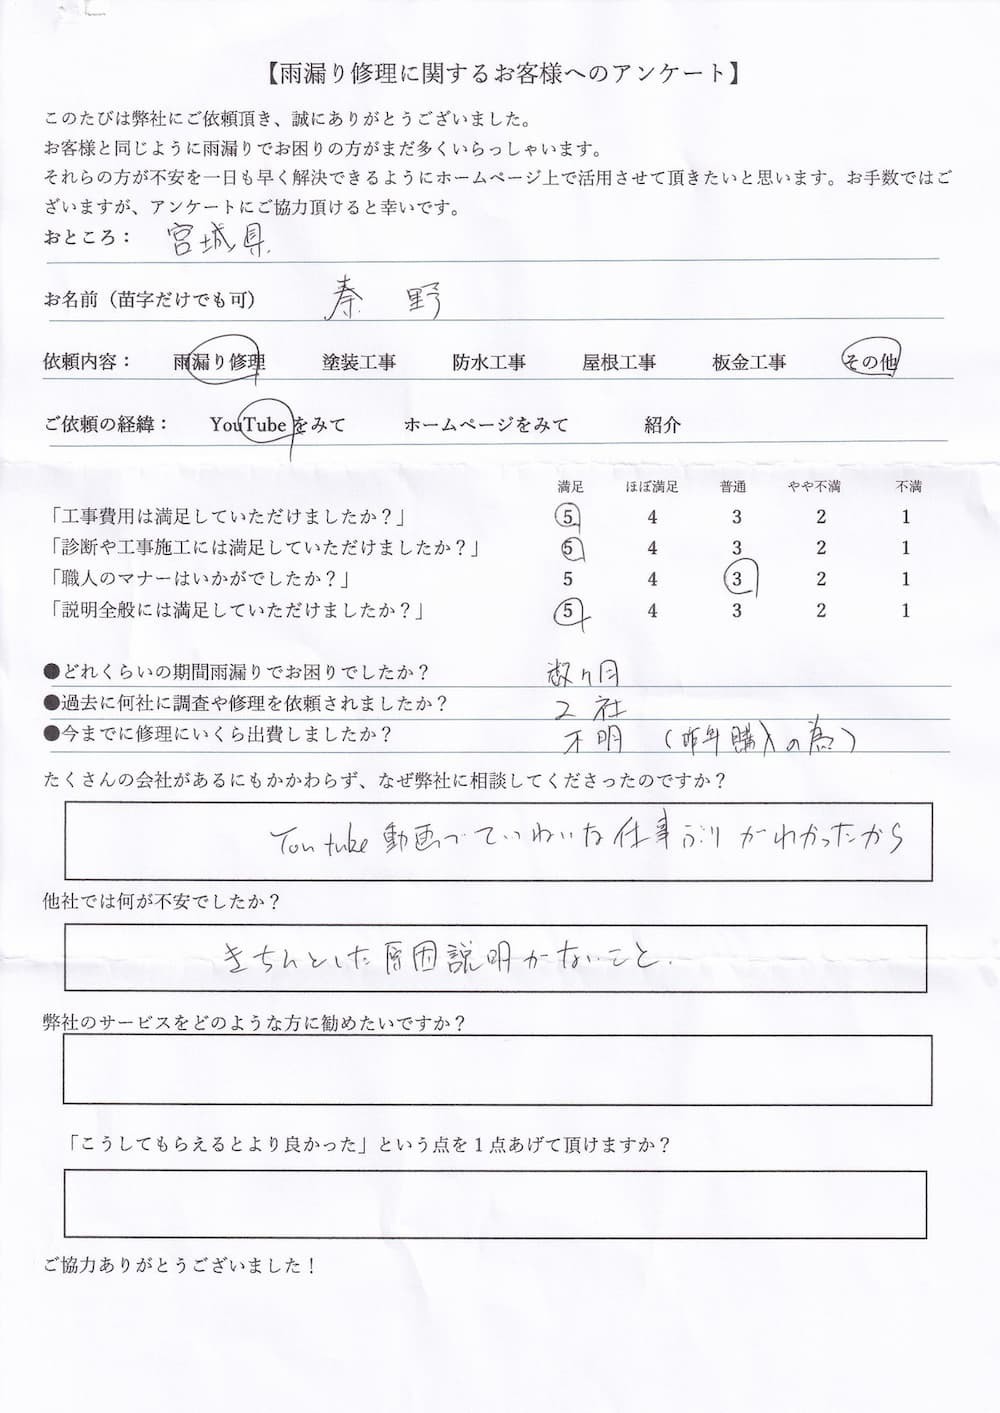 【雨漏り修理に関するお客様へのアンケート】
このたびは弊社にご依頼頂き、誠にありがとうございました。
お客様と同じように雨漏りでお困りの方がまだ多くいらっしゃいます。
それらの方が不安を一日も早く解決できるようにホームページ上で活用させて頂きたいと思います。お手数ではご
ざいますが、アンケートにご協力頂けると幸いです。
おところ： 宮城県
お名前（苗字だけでも可） 秦野
依頼内容： 雨漏り修理 塗装工事 防水工事 屋根工事 板金工事 その他
ご依頼の経緯： YouTubeをみて ホームページをみて 紹介
満足 ほぼ満足 普通 やや不満 不満
「工事費用は満足していただけましたか？」 5 4 3 2 1
「診断や工事施工には満足していただけましたか？」 5 4 3 2 1
「職人のマナーはいかがでしたか？」 5 4 3 2 1
「説明全般には満足していただけましたか？」 5 4 3 2 1
●どれくらいの期間雨漏りでお困りでしたか？ 数ヶ月
●過去に何社に調査や修理を依頼されましたか？ 2社
●今までに修理にいくら出費しましたか？ 不明（昨年購入の為）
たくさんの会社があるにもかかわらず、なぜ弊社に相談してくださったのですか？
Youtube動画でていねいな仕事ぶりがわかったから
他社では何が不安でしたか？
きちんとした原因説明がないこと.
弊社のサービスをどのような方に勧めたいですか？
「こうしてもらえるとより良かった」という点を１点あげて頂けますか？
ご協力ありがとうございました！